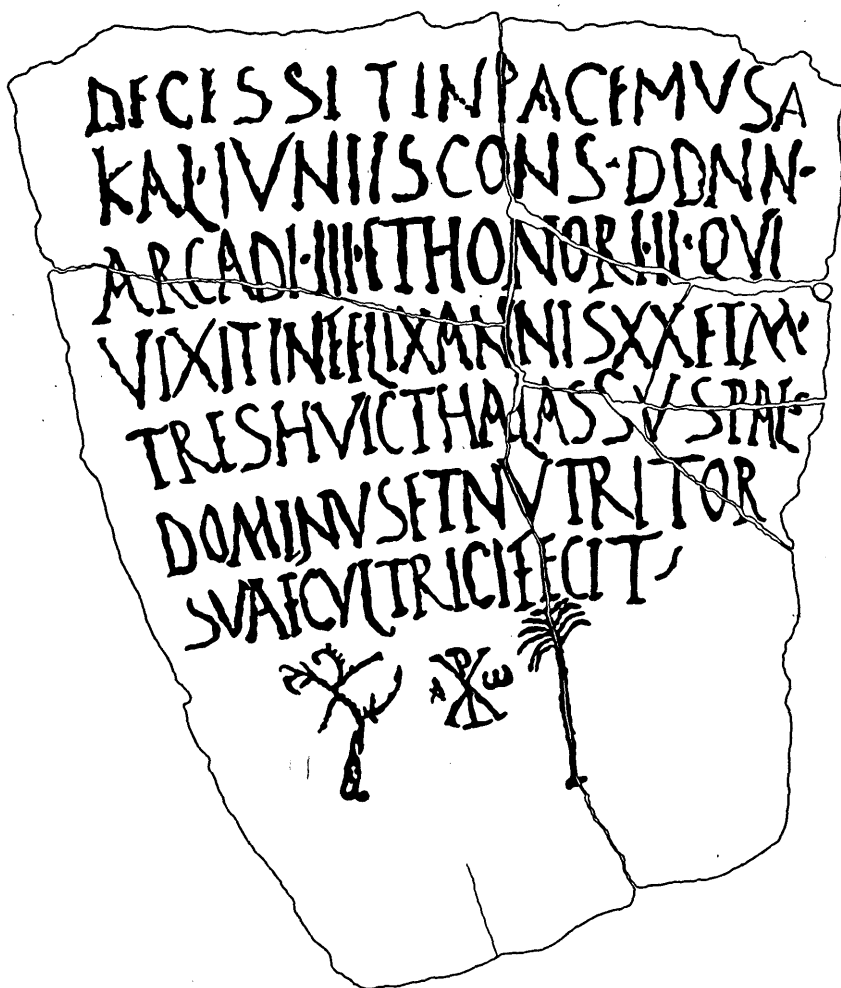 DECESSIT IN PACE MVSA
KAL·IVNIIS CONS·DDNN·
ARCADI·III·ET HONORI·II·QVI
VIXIT INFELIX ANNIS XX ET M·
TRES HVIC THALASSVS PAL·
DOMINVS ET NVTRITOR
SVAE CVLTRICI FECIT
A ☧ ω